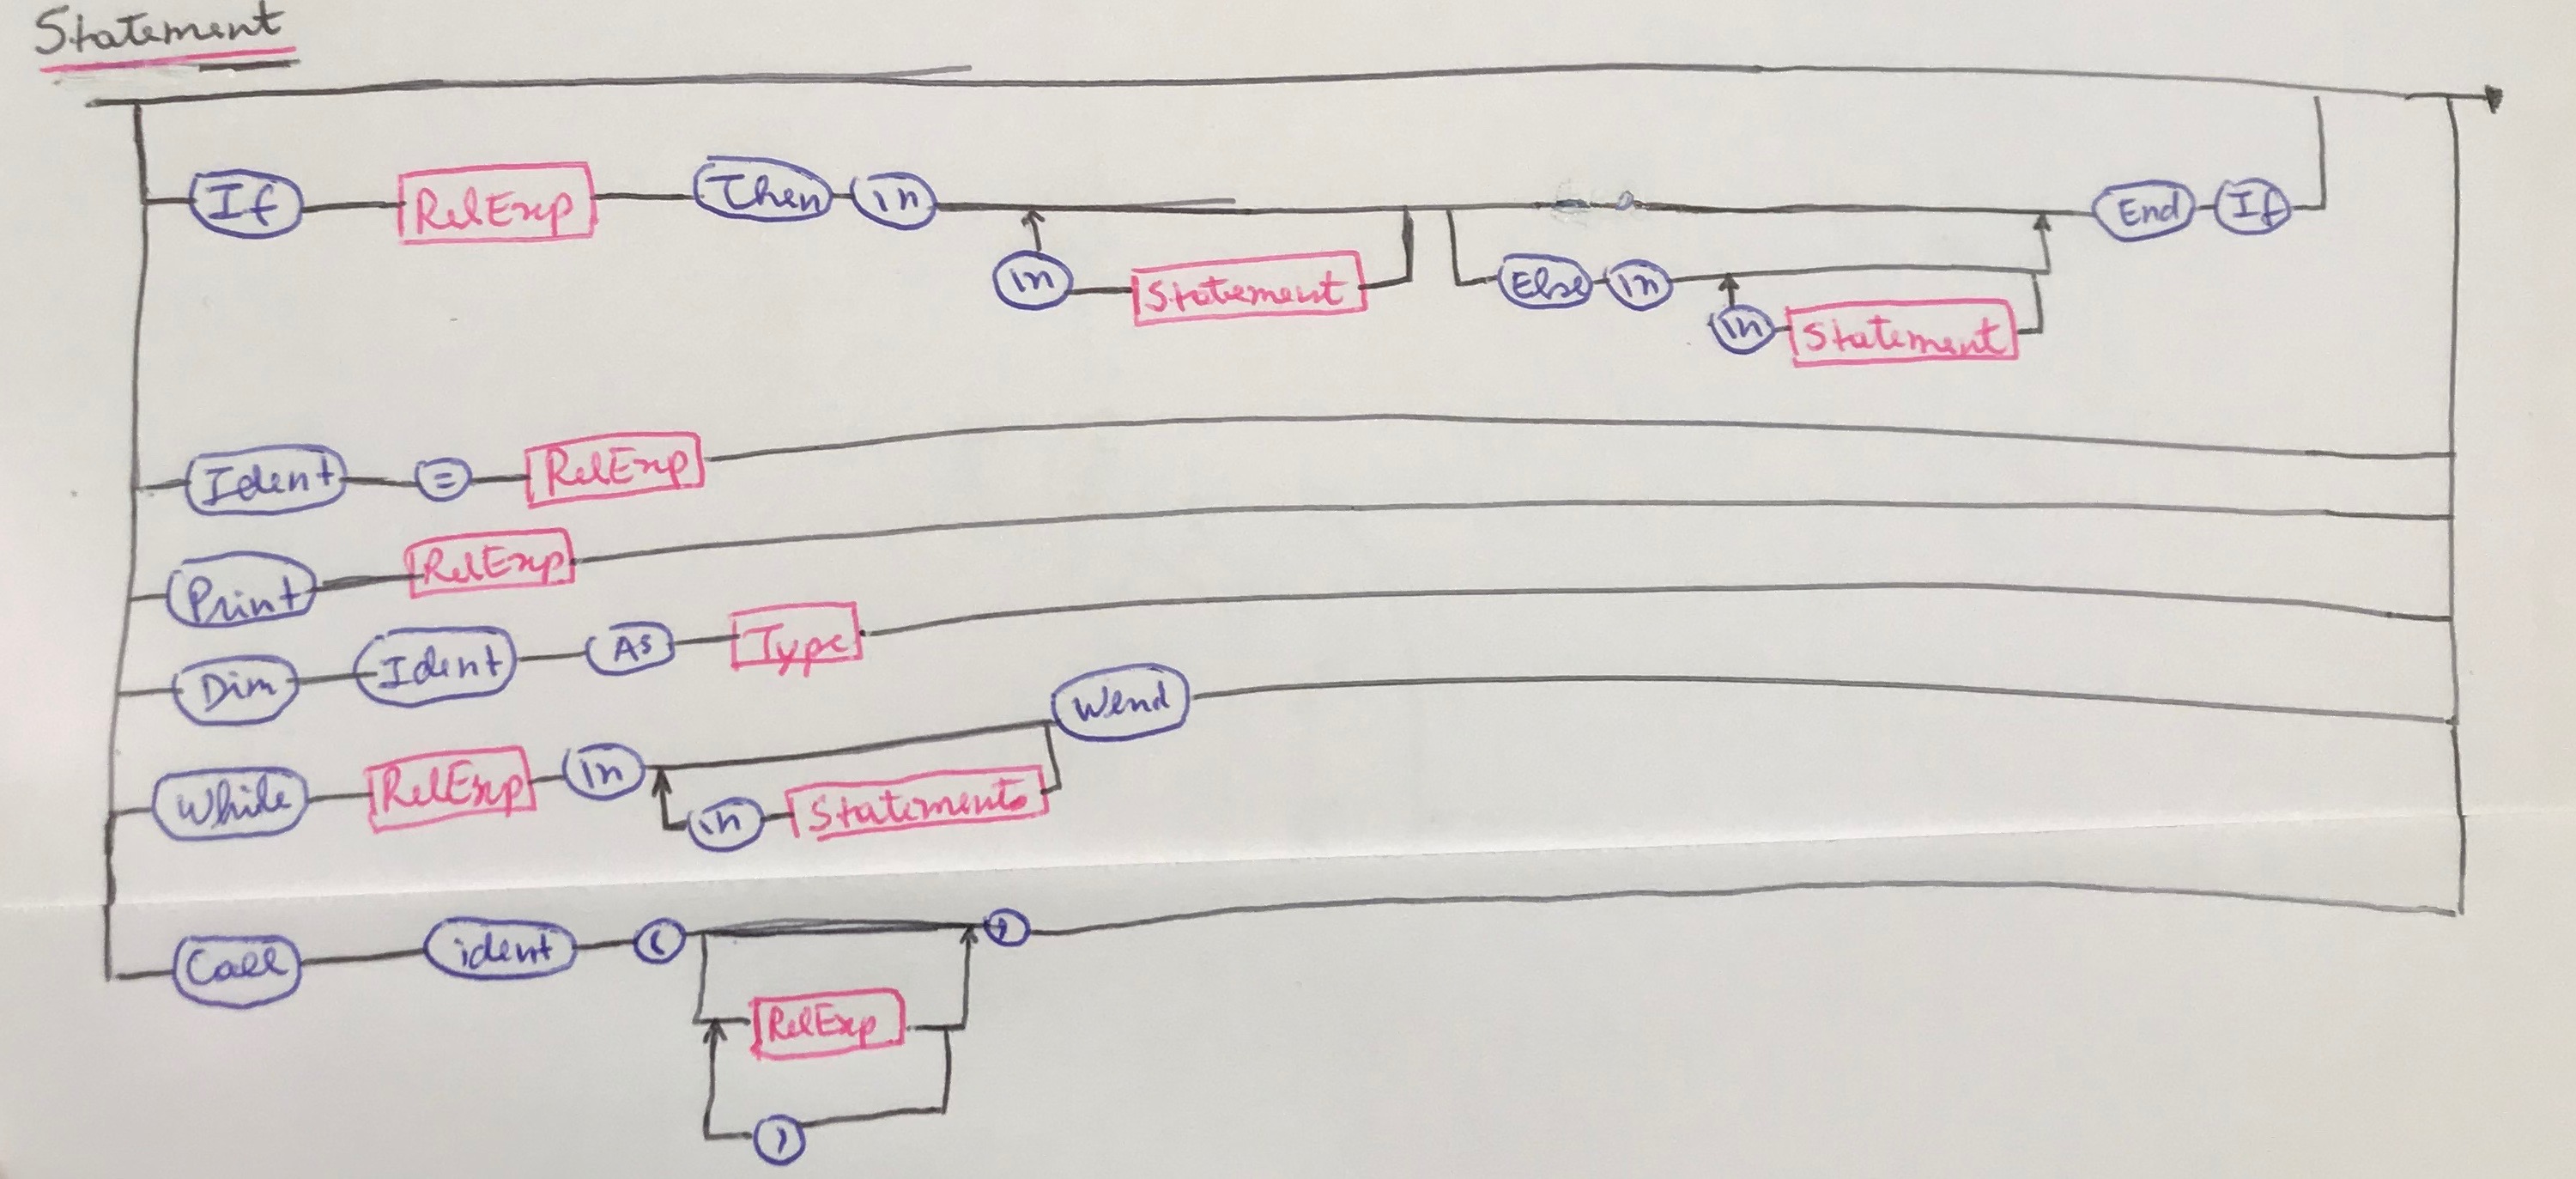 Statement
If RelExp Then \n End If
\n Statement Else \n
\n Statement
Ident = RelExp
Print RelExp
Dim Ident As Type
Wend
While RelExp \n
\n Statements
Call ident ( )
RelExp
,